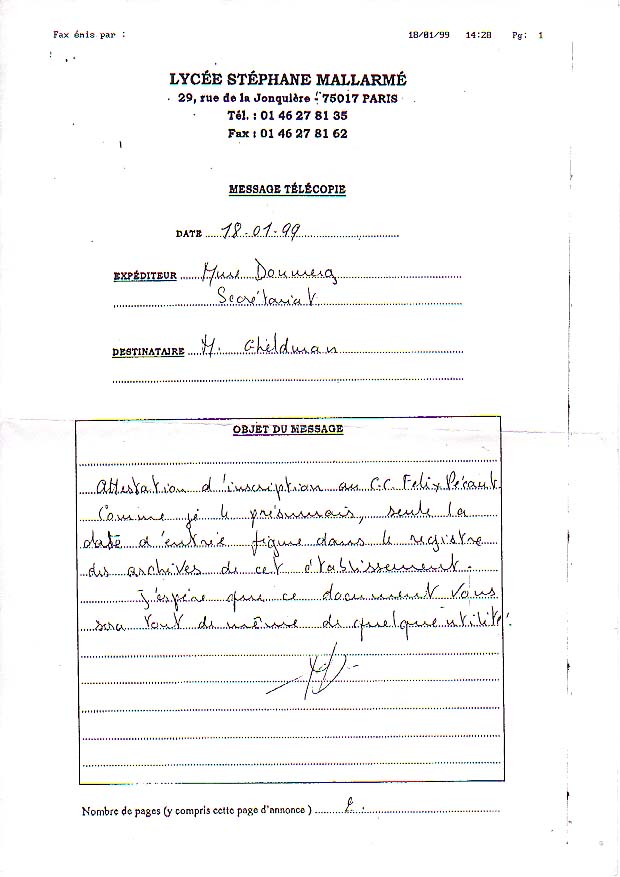 Fax émis par : 18/01/99 14:28 Pg: 1
LYCÉE STÉPHANE MALLARMÉ
29, rue de la Jonquière - 75017 PARIS
Tél. : 01 46 27 81 35
Fax : 01 46 27 81 62
MESSAGE TÉLÉCOPIE
DATE 18-01-99
EXPÉDITEUR Mme Doumerg
Secrétariat
DESTINATAIRE M. Gheldman
OBJET DU MESSAGE
Attestation d'inscription au C.C. Felix Pécaut
Comme je le présumais, seule la
date d'entrée figure dans le registre
des archives de cet établissement.
J'espère que ce document vous
sera tout de même de quelque utilité.
Nombre de pages (y compris cette page d'annonce) 2.